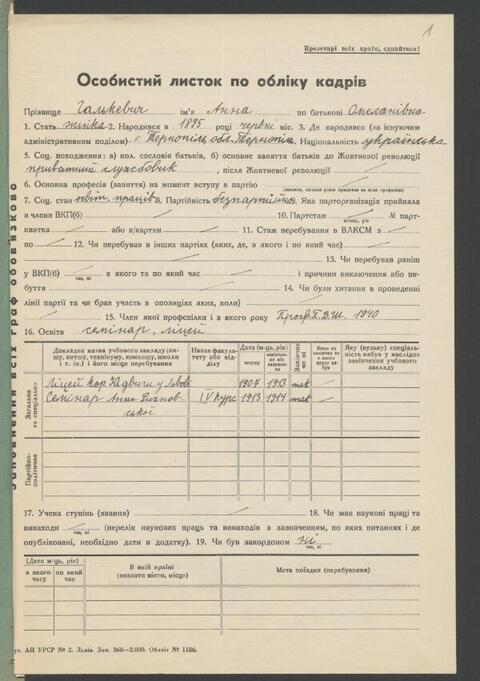 1
Пролетарі всіх країн, єднайтеся!
Особистий листок по обліку кадрів
Прізвище Галькевич ім'я Анна по батькові Омелянівна
1. Стать жінка 2. Народився в 1895 році червні міс. 3. Де народився (за існуючим
адміністративним поділом) м Тернопіль, обл. Тернопіль. Національність українська
5. Соц. походження: а) кол. сословіє батьків, б) основне заняття батьків до Жовтневої революції
приватний службовик, після Жовтневої революції
6. Основна професія (заняття) на момент вступу в партію
7. Соц. стан робіт. праців 8. Партійність безпартійна Яка парторганізація прийняла
в члени ВКП(б) 10. Партстаж № парт-
місяць, рік
квитка або к/картки 11. Стаж перебування в ВЛКСМ з
по 12. Чи перебував в інших партіях (яких, де, з якого і по який час)
13. Чи перебував раніш
у ВКП(б) з якого та по який час і причини виключення або ви-
так, ні
буття 14. Чи були хитання в проведенні
лінії партії та чи брав участь в опозиціях яких, коли)
15. Член якої профспілки і з якого року Проф. П.В.Ш. 1940
16. Освіта семінар, ліцей
Загальна та спеціальна
Партійно-політична
Докладна назва учбового закладу (ви-
шу, витшу, технікуму, комвишу, школи
і т. ін.) і його місце перебування
Назва факуль-
тету або від-
ділу
Дата (м-ць, рік)
вступу
Яку (вузьку) спеціаль-
ність набув у наслідок
закінчення учбового
закладу
Ліцей кор. Ядвиги у Львові 1907 1913 так
Семінар Анни Рихнов- IV курс 1913 1914 так
ської
17. Учена ступінь (звання) 18. Чи має наукові праці та
винаходи (перелік наукових праць та винаходів з зазначенням, по яких питаннях і де
так, ні
опубліковані, необхідно дати в додатку). 19. Чи був закордоном ні
так, ні
Дата (м-ць, рік)
з якого
часу
по який
час
В якій країні
(вказати місто, місце)
Мета поїздки (перебування)
АП УРСР № 2. Львів. Зам. 368—2.000. Обліт № 1186.